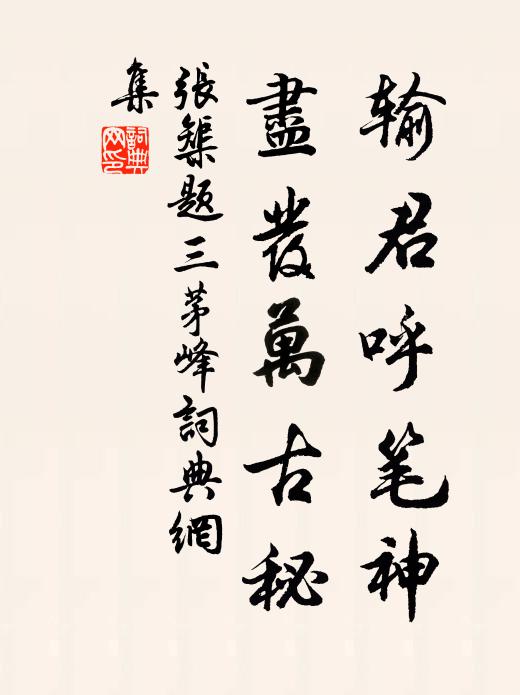 输君呼笔神
盡發萬古秘
張榘题三茅峰詞典網
集
詞典網印